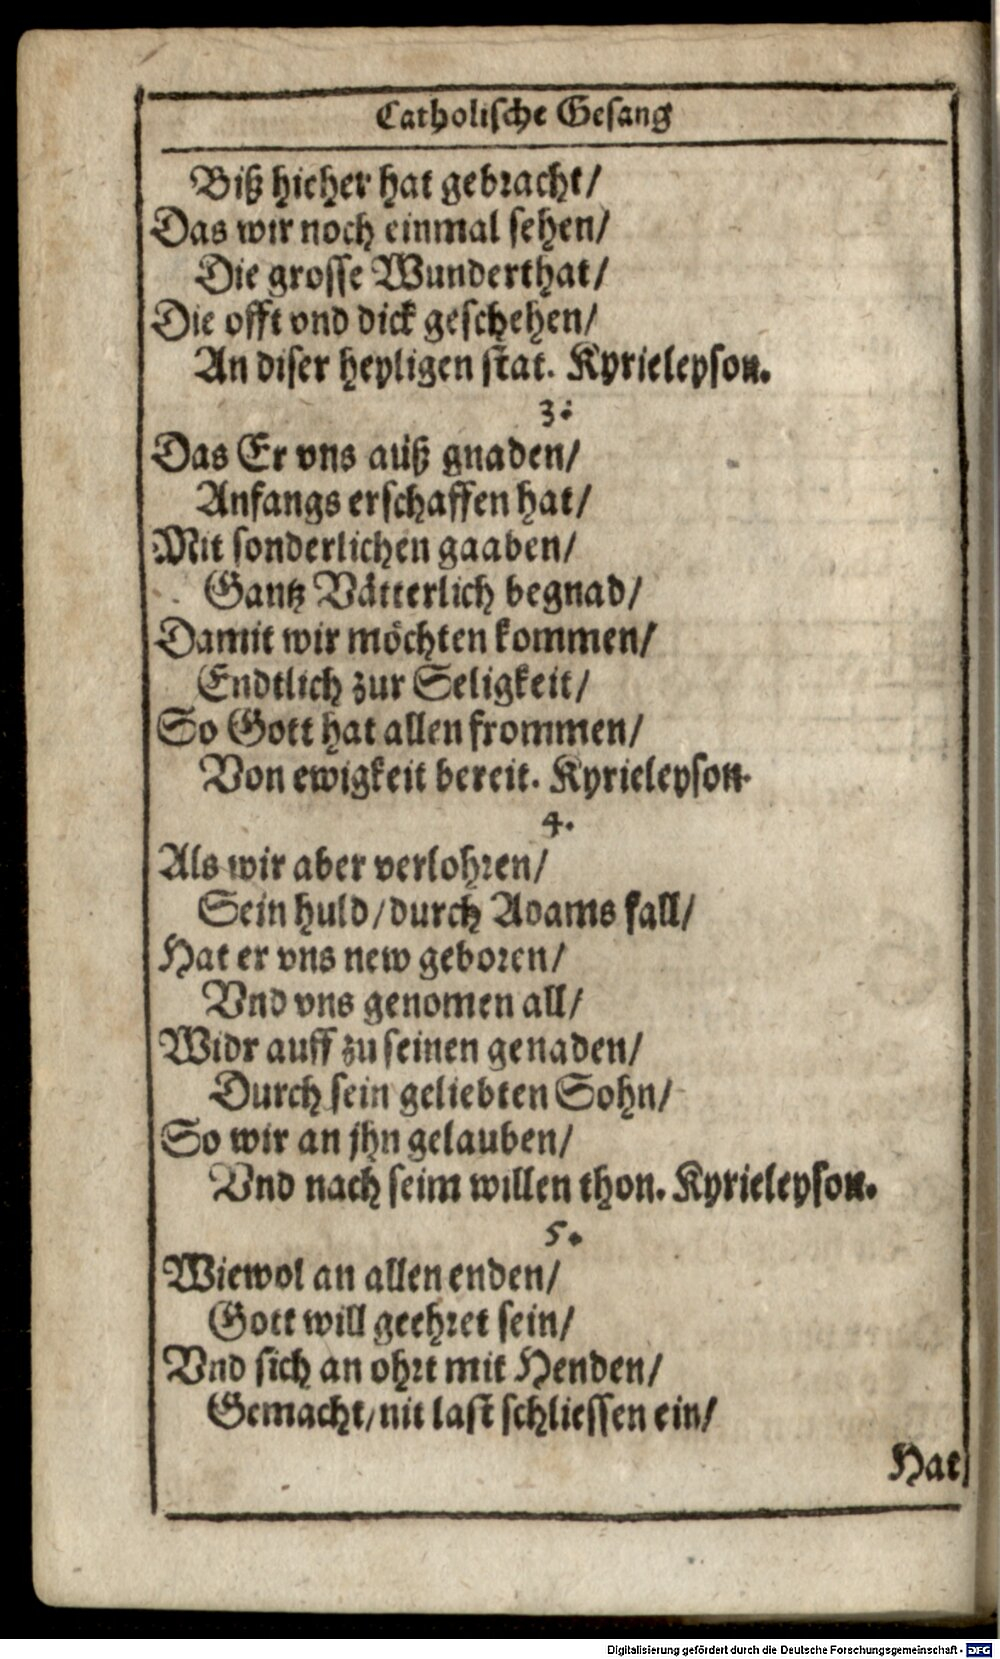 Catholische Gesang
Biß hieher hat gebracht/
Das wir noch einmal sehen/
Die grosse Wunderthat/
Die offt vnd dick geschehen/
An diser heyligen stat. Kyrieleyson.
3.
Das Er vns auß gnaden/
Anfangs erschaffen hat/
Mit sonderlichen gaaben/
Gantz Vätterlich begnad/
Damit wir möchten kommen/
Endtlich zur Seligkeit/
So Gott hat allen frommen/
Von ewigkeit bereit. Kyrieleyson.
4.
Als wir aber verlohren/
Sein huld/durch Adams fall/
Hat er vns new geboren/
Vnd vns genomen all/
Widr auff zu seinen genaden/
Durch sein geliebten Sohn/
So wir an jhn gelauben/
Vnd nach seim willen thon. Kyrieleyson.
5.
Wiewol an allen enden/
Gott will geehret sein/
Vnd sich an ohrt mit Henden/
Gemacht/nit last schliessen ein/
Hat
Digitalisierung gefördert durch die Deutsche Forschungsgemeinschaft - DFG